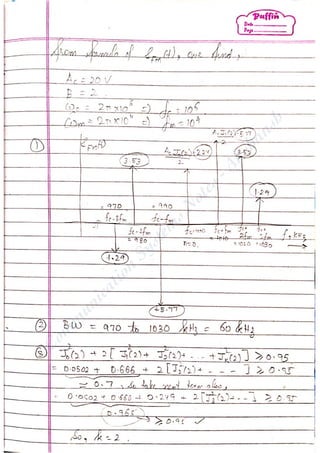 Puffin
Date
Page
from formula of ξFm(t), one find,
Ac = 20 V
B = 2
ωc = 2π×10⁶ => fc = 10⁶
ωm = 2π×10⁴ => fm = 10⁴
① ξFm(t)
Ac J1(2) = 5.77
Ac J0(2) 2.24
2
3.53 3.53
1.29
970 990
fc-3fm fc-fm fc=1000 fc+fm fc+2fm fc+3fm f, kHz
fc-2fm = 980 n=0 = 1010 = 1020 = 1030
1.29
-5.77
② BW = 970 to 1030 kHz = 60 kHz
③ J0²(2) + 2[ J1²(2) + J2²(2) + .. + Jk²(2) ] ≥ 0.95
= 0.0502 + 0.666 + 2[ J2²(2) + - - - ] ≥ 0.95
≈ 0.7, so take next term also,
0.0502 + 0.666 + 0.249 + 2[ J3²(2) + .. ] ≥ 0.95
0.965 ≥ 0.95 ✓
So, k = 2.